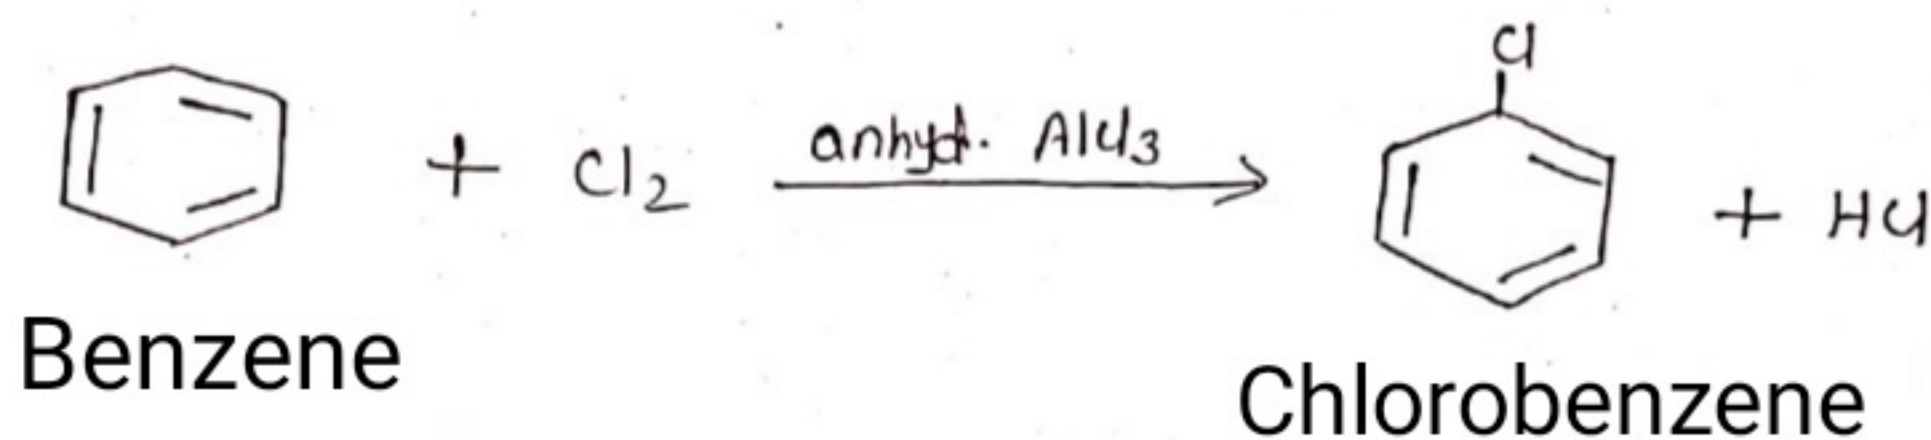 Cl
+ Cl2 anhyd. AlCl3 + HCl
Benzene
Chlorobenzene